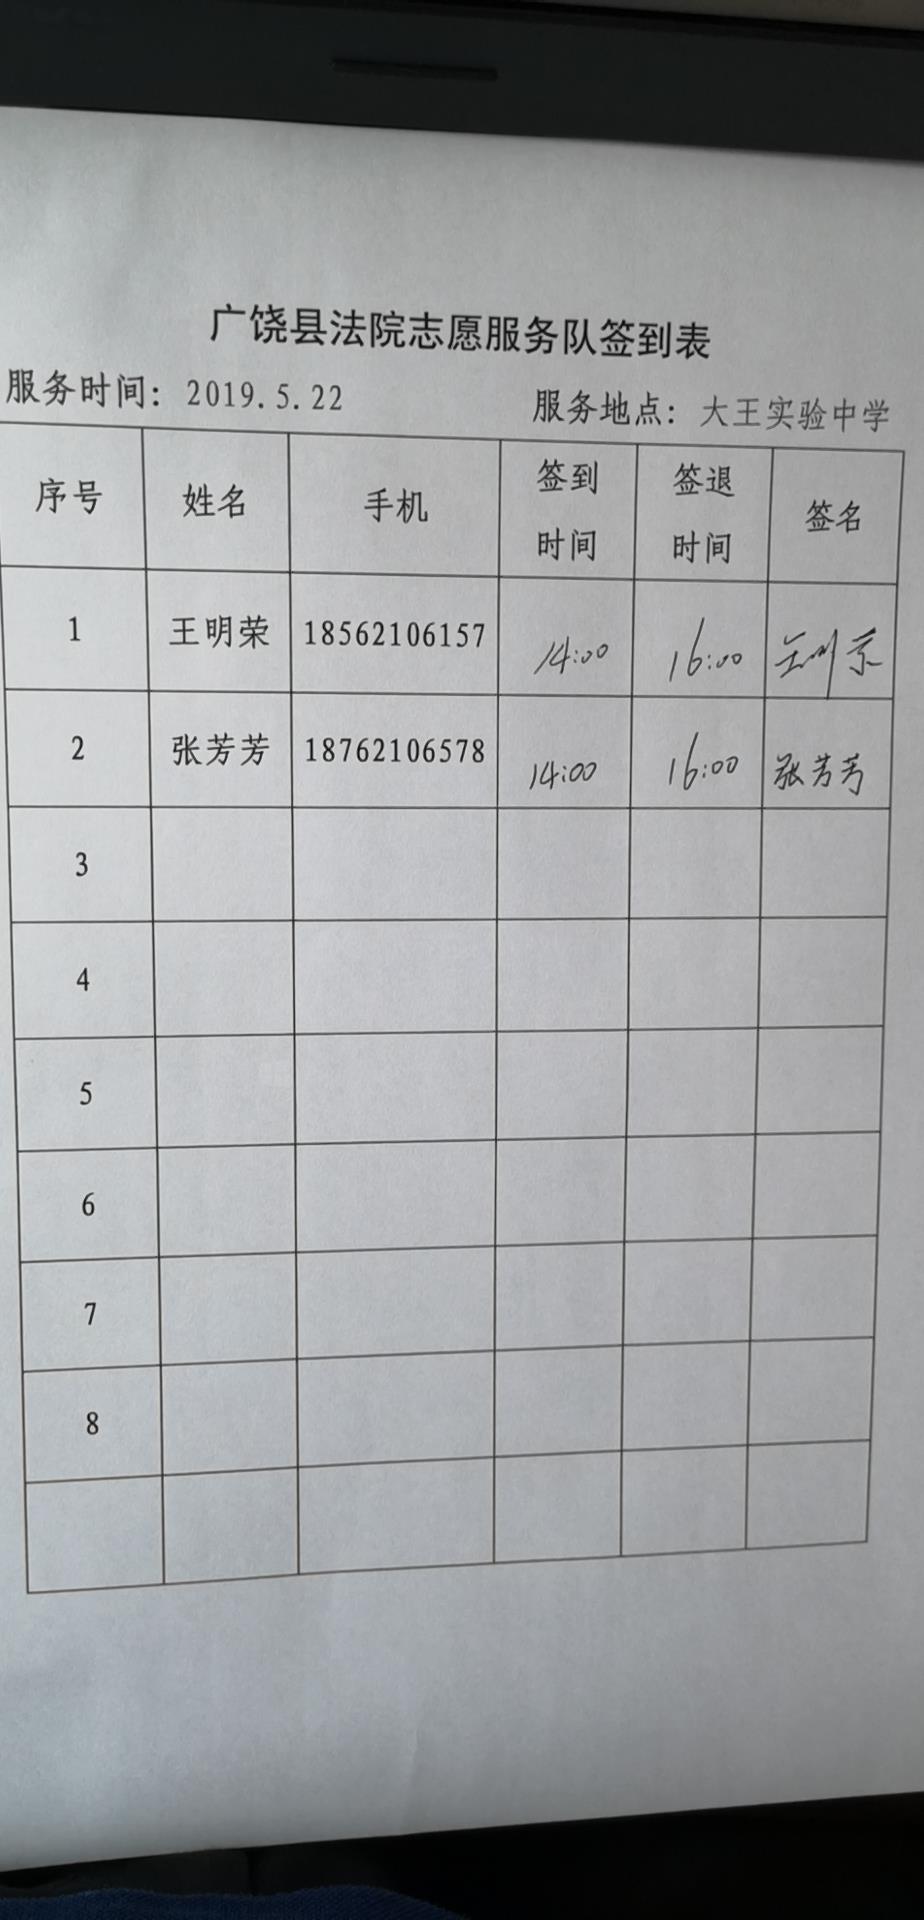 广饶县法院志愿服务队签到表
服务时间：2019.5.22 服务地点：大王实验中学
序号 姓名 手机 签到时间 签退时间 签名
1 王明荣 18562106157 14:00 16:00 王明荣
2 张芳芳 18762106578 14:00 16:00 张芳芳
3
4
5
6
7
8